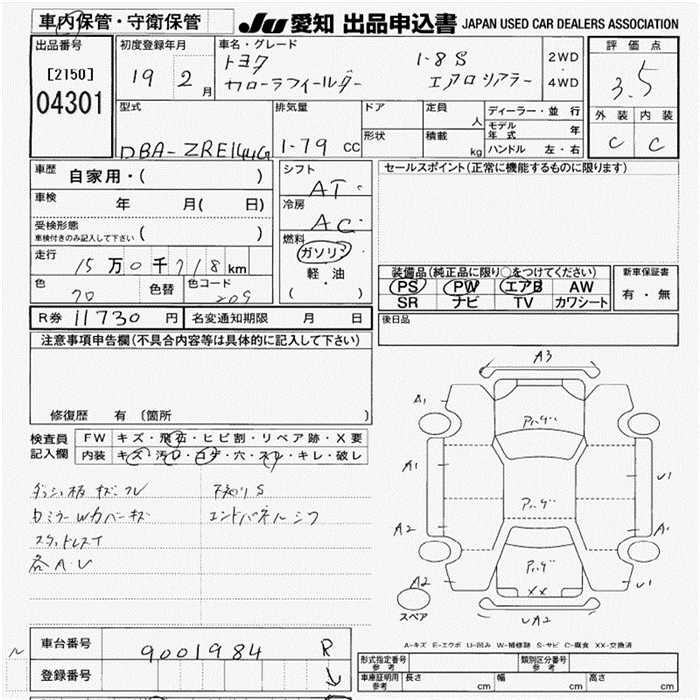 車内保管・守衛保管
JU 愛知 出品申込書 JAPAN USED CAR DEALERS ASSOCIATION
出品番号
[2150]
04301
初度登録年月
19年 2月
車名・グレード
トヨタ
カローラフィールダー
1-8 S
エアロツアラー
2WD
4WD
評価点
3.5
外装 内装
C C
型式
DBA-ZRE144G
排気量
1-79 cc
ドア
形状
定員 人
積載 kg
ディーラー・並行
モデル年式 年
ハンドル 左・右
車歴 自家用・( )
車検 年 月( 日)
受検形態
車検付きのみ記入して下さい ( )
走行 15万0千718km
色 70 色替 色コード 209
シフト
AT
冷房
AC
燃料
ガソリン
軽・油
( )
セールスポイント(正常に機能するものに限ります)
装備品(純正品に限り○をつけてください)
PS PW エアB AW
SR ナビ TV カワシート
新車保証書
有・無
後日品
R券 11730円 名変通知期限 月 日
注意事項申告欄(不具合内容等は具体的に記入して下さい)
修復歴 有 (箇所 )
検査員記入欄
FW キズ・飛石・ヒビ割・リペア跡・X要
内装 キズ・汚れ・コゲ・穴・スレ・キレ・破レ
ダッシュ板キズフレ
カミラーWカバーキズ
スタッドレスT
各A.U
下廻りS
エンドパネルシワ
A3
A1
A1
A2
A2
U1
A1
U1
UA2
XX
スペア
A-キズ E-エクボ U-凹み W-補修跡 S-サビ C-腐食 XX-交換済
車台番号 9001984 R
登録番号
ル
形式指定番号 参考
類別区分番号 参考
車庫証明用 参考 長さ cm 幅 cm 高さ cm